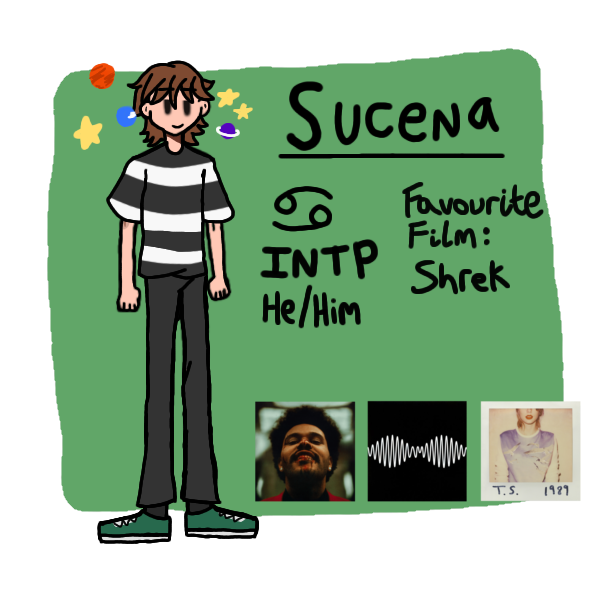 Sucena
♋
INTP
He/Him
Favourite
Film:
Shrek
T.S. 1989